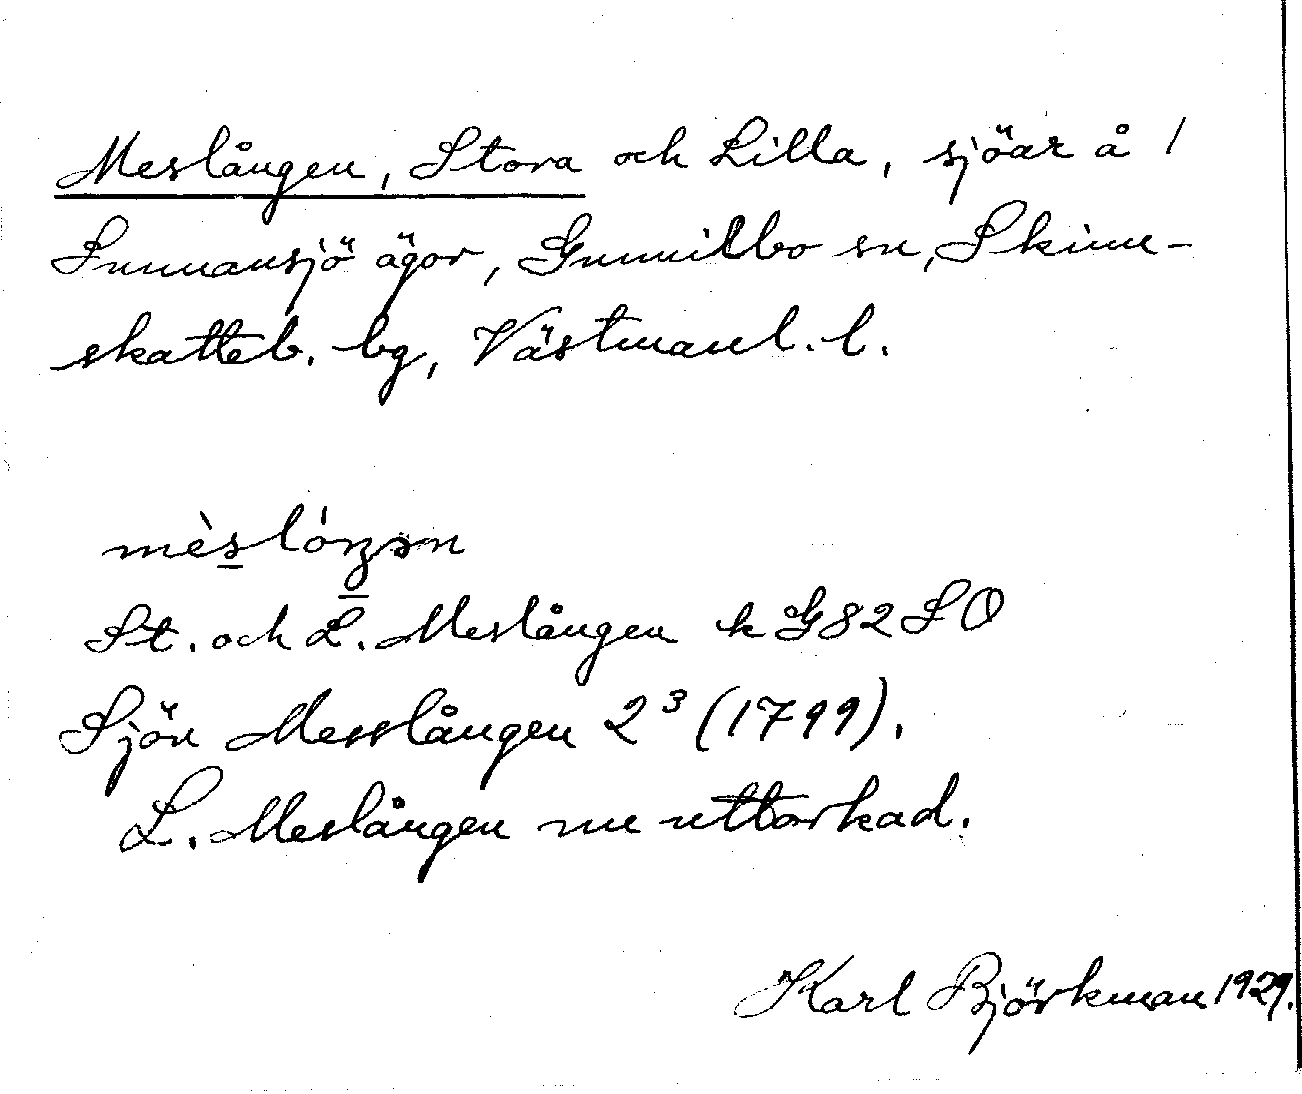 Meslången, Stora och Lilla, sjöar å /
Sunnansjö ägor, Gunnilbo sn, Skinn-
skatteb. bg, Västmanl. l.
St. och L. Meslången k G82SO
Sjön Messlången 2³ (1799).
L. Meslången nu uttorkad.
Karl Björkman 1929.